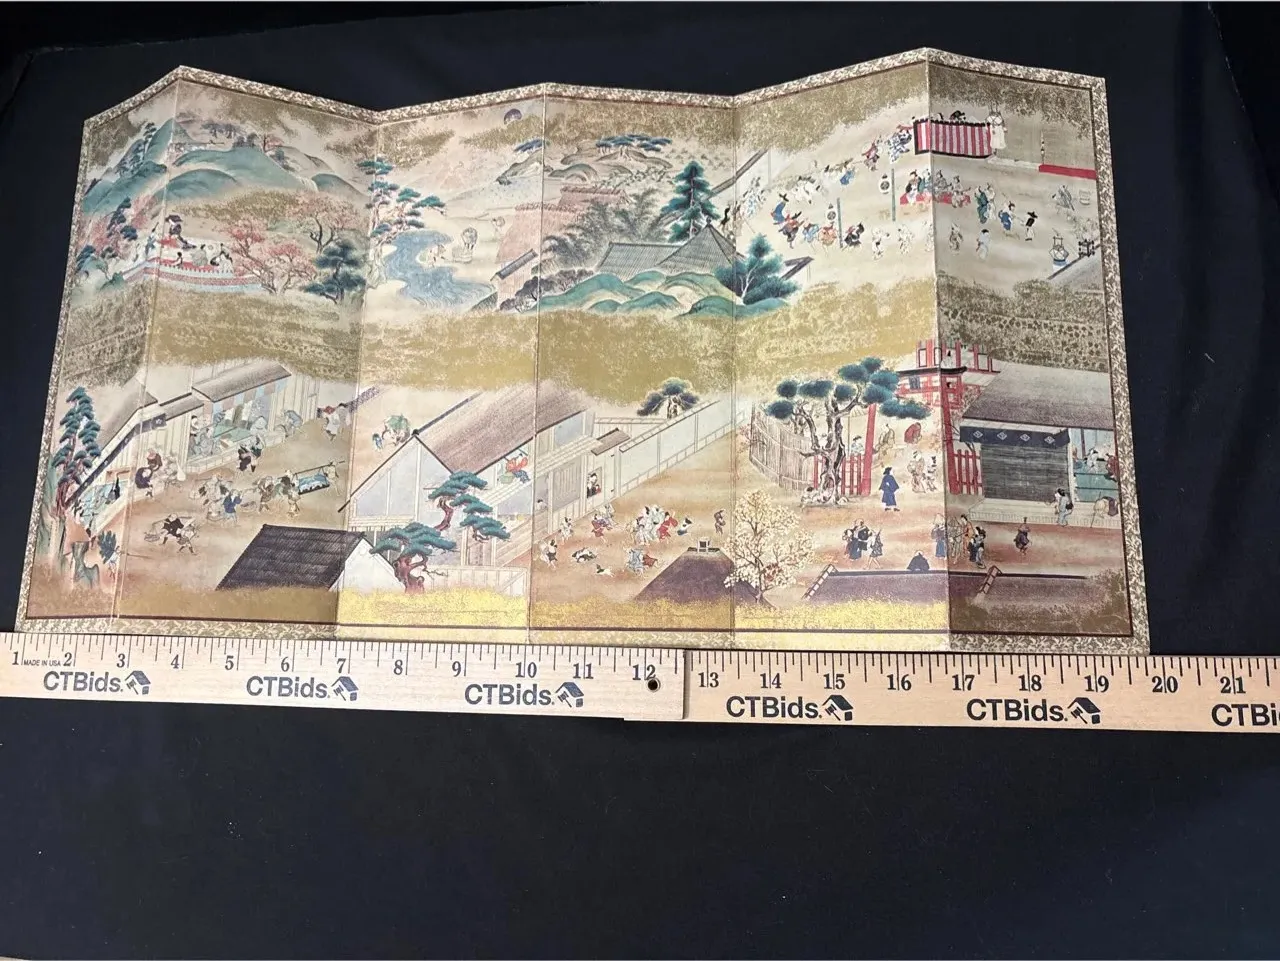 1 MADE IN USA 2 3 4 5 6 7 8 9 10 11 12 13 14 15 16 17 18 19 20 21
CTBids. CTBids. CTBids. CTBids. CTBids. CTBi